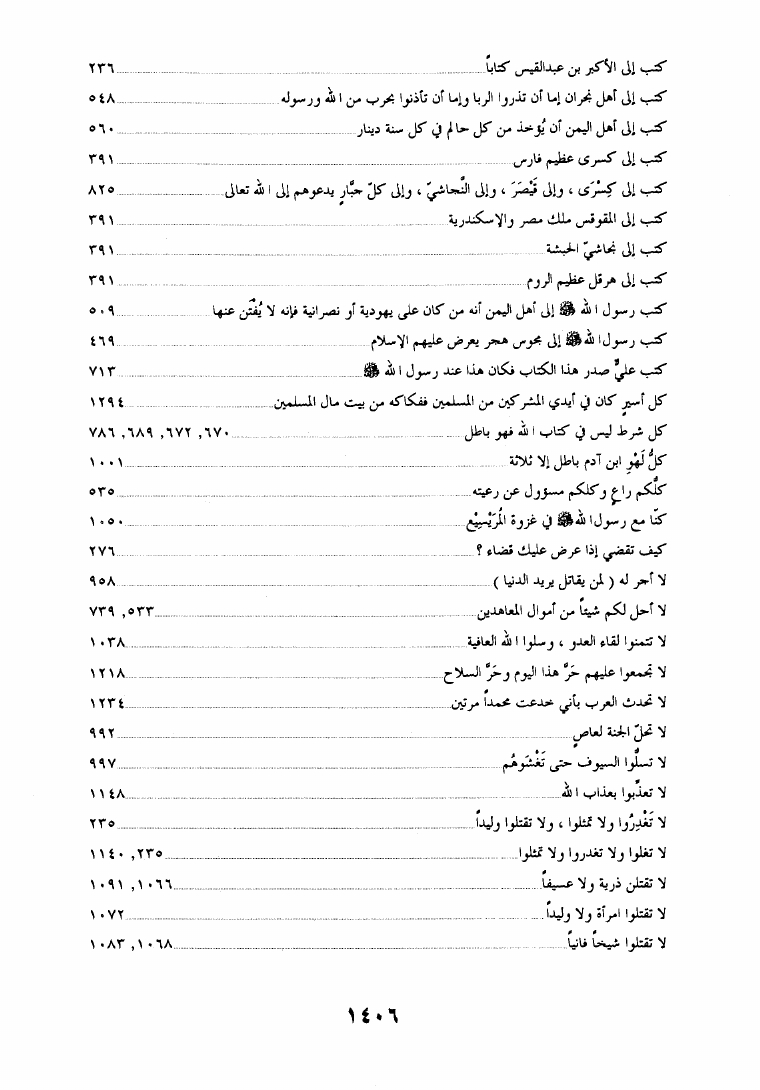 كتب إلى الأكبر بن عبدالقيس كتاباً ٢٣٦
كتب إلى أهل نجران إما أن تذروا الربا وإما أن تأذنوا بحرب من الله ورسوله ٥٤٨
كتب إلى أهل اليمن أن يُؤخذ من كل حالم في كل سنة دينار ٥٦٠
كتب إلى كسرى عظيم فارس ٣٩١
كتب إلى كِسْرَى ، وإلى قَيْصَرَ ، وإلى النَّجاشيّ ، وإلى كلّ جبَّارٍ يدعوهم إلى الله تعالى ٨٢٥
كتب إلى المقوقس ملك مصر والإسكندرية ٣٩١
كتب إلى نجاشيّ الحبشة ٣٩١
كتب إلى هرقل عظيم الروم ٣٩١
كتب رسول الله ﷺ إلى أهل اليمن أنه من كان على يهودية أو نصرانية فإنه لا يُفْتَن عنها ٥٠٩
كتب رسول الله ﷺ إلى مجوس هجر يعرض عليهم الإسلام ٤٦٩
كتب عليٌّ صدر هذا الكتاب فكان هذا عند رسول الله ﷺ ٧١٣
كل أسيرٍ كان في أيدي المشركين من المسلمين ففكاكه من بيت مال المسلمين ١٢٩٤
كل شرط ليس في كتاب الله فهو باطل ٦٧٠, ٦٧٢, ٦٨٩, ٧٨٦
كلُّ لَهْوِ ابن آدم باطل إلا ثلاثة ١٠٠١
كلُّكم راعٍ وكلكم مسؤول عن رعيته ٥٣٥
كنّا مع رسول الله ﷺ في غزوة المُرَيْسِيْع ١٠٥٠
كيف تقضي إذا عرض عليك قضاء ؟ ٢٧٦
لا أجر له ( لمن يقاتل يريد الدنيا ) ٩٥٨
لا أحل لكم شيئاً من أموال المعاهدين ٥٣٣, ٧٣٩
لا تتمنوا لقاء العدو ، وسلوا الله العافية ١٠٣٨
لا تجمعوا عليهم حَرَّ هذا اليوم وحَرَّ السلاح ١٢١٨
لا تحدث العرب بأني خدعت محمداً مرتين ١٢٣٤
لا تحلّ الجنة لعاصٍ ٩٩٢
لا تسلُّوا السيوف حتى تَغْشَوهُم ٩٩٧
لا تعذّبوا بعذاب الله ١١٤٨
لا تَغْدِرُوا ولا تمثلوا ، ولا تقتلوا وليداً ٢٣٥
لا تغلوا ولا تغدروا ولا تمثلوا ٢٣٥, ١١٤٠
لا تقتلن ذرية ولا عسيفاً ١٠٦٦, ١٠٩١
لا تقتلوا امرأة ولا وليداً ١٠٧٢
لا تقتلوا شيخاً فانياً ١٠٦٨, ١٠٨٣
١٤٠٦